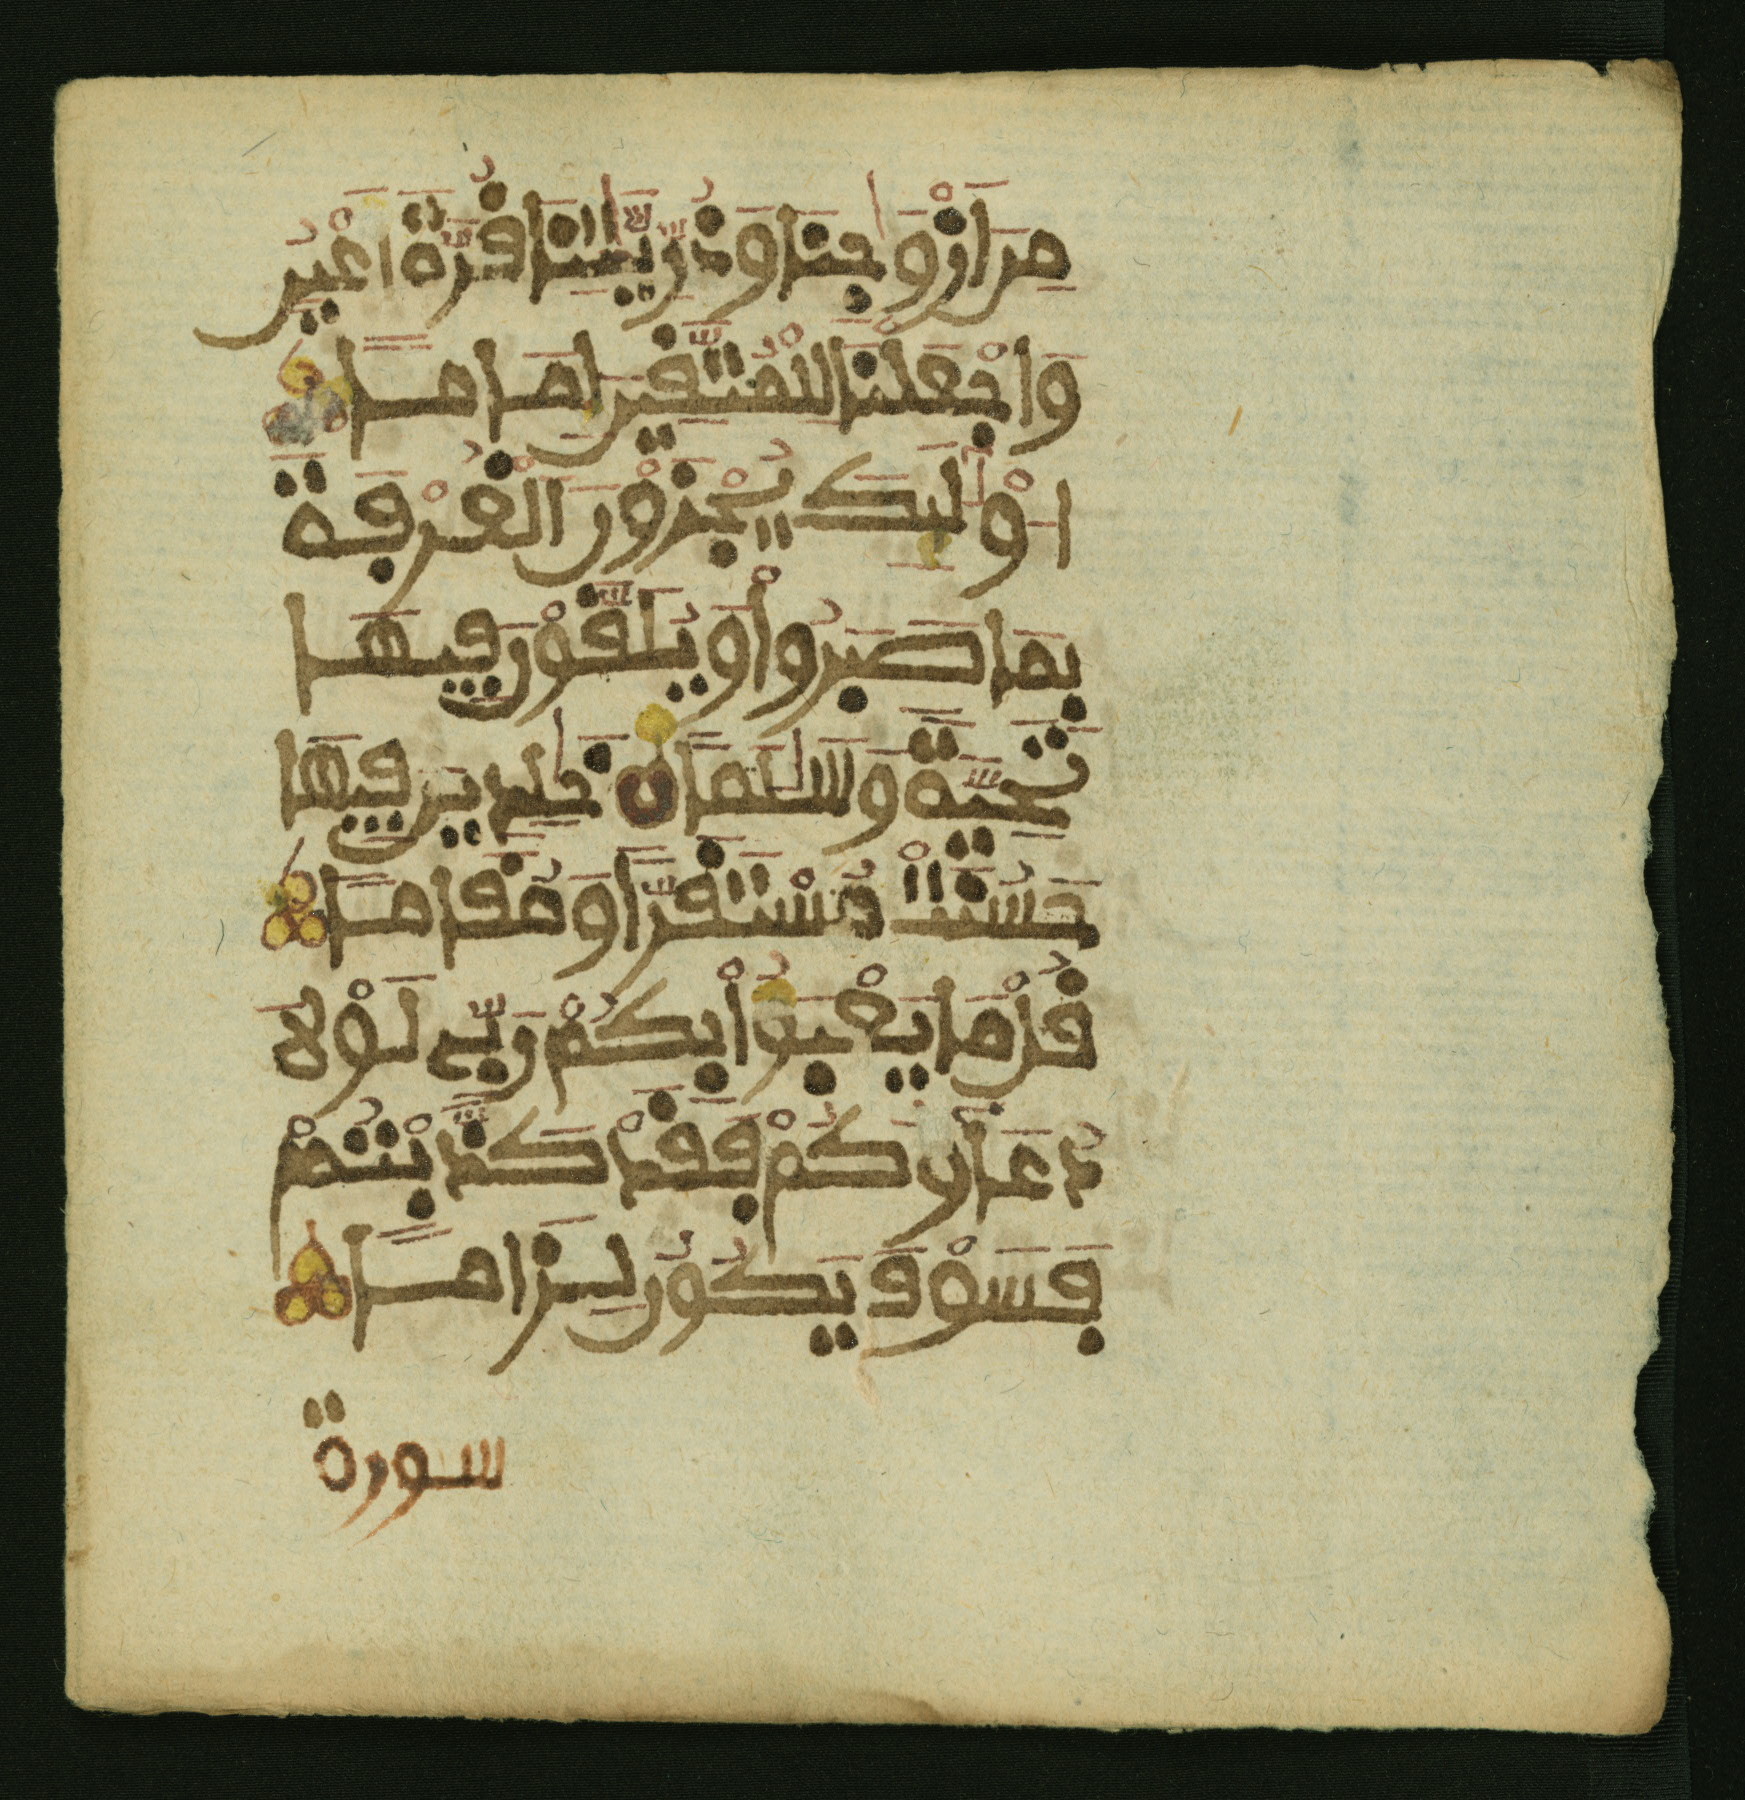 مِنَ ازْوَٰجِنَا وَذُرِّيَّٰتِنَا قُرَّةَ أَعْيُنٍ
وَاجْعَلْنَا لِلْمُتَّقِينَ إِمَامًا
اوْلَٰٓئِكَ يُجْزَوْنَ الْغُرْفَةَ
بِمَا صَبَرُواْ وَيُلَقَّوْنَ فِيهَا
تَحِيَّةً وَسَلَٰمًا خَٰلِدِينَ فِيهَا
حَسُنَتْ مُسْتَقَرًّا وَمُقَامًا
قُلْ مَا يَعْبَؤُاْ بِكُمْ رَبِّي لَوْلَا
دُعَاؤُكُمْ فَقَدْ كَذَّبْتُمْ
فَسَوْفَ يَكُونُ لِزَامًا
سورة